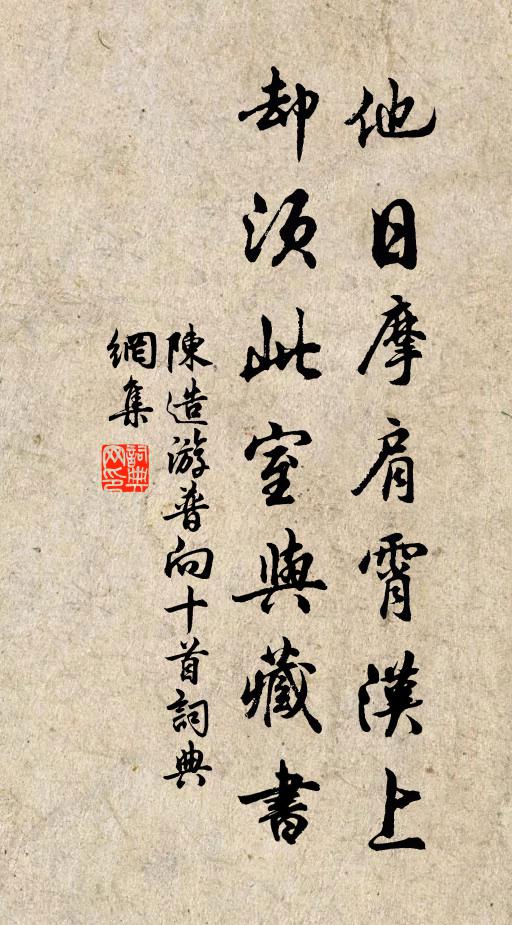 他日摩肩霄漢上
却須此室與藏書
陳造游普向十首詞典
網集
詞典網印